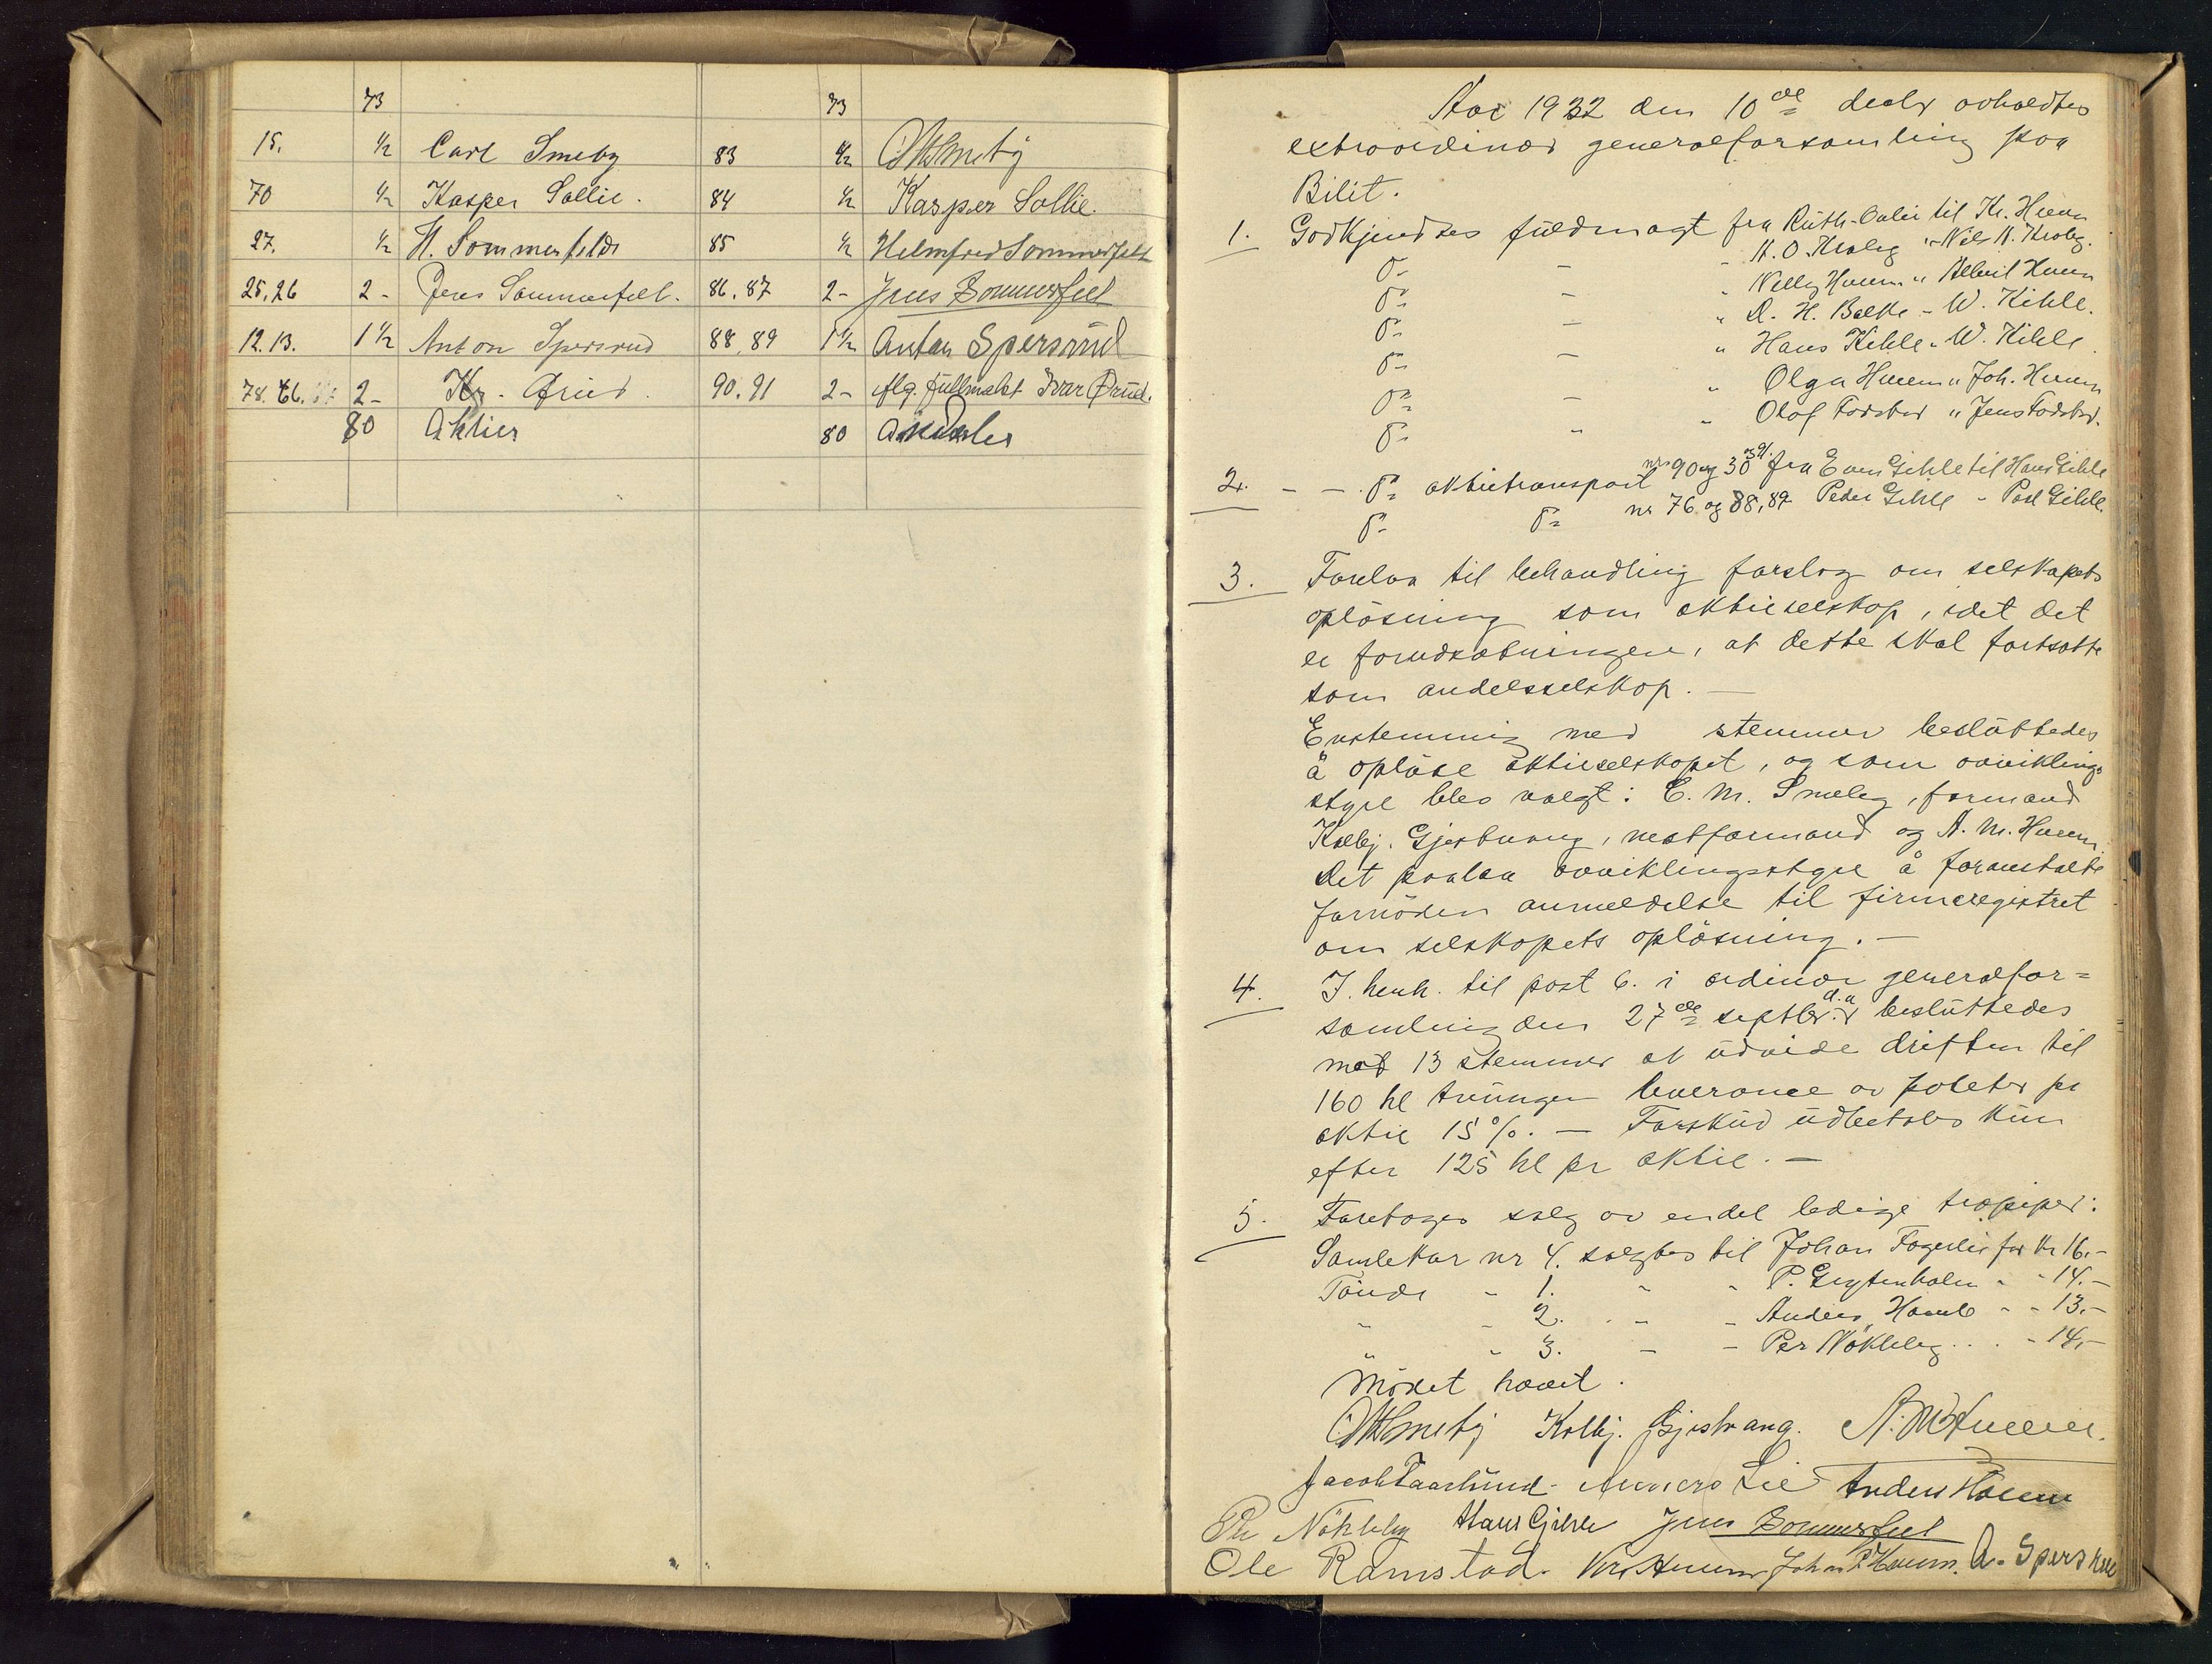 73 73
15. ½ Carl Smeby 83 ½ CMSmeby
70 ½ Kasper Sollie. 84 ½ Kasper Sollie.
27. ½ H. Sommerfeldt 85 ½ Helmfred Sommerfelt
25,26 2- Jens Sommerfelt. 86.87 2- Jens Sommerfelt
12.13. 1½ Anton Spersrud 88,89 1½ Anton Spersrud
78. 66. 2- Kr. Ørud. 90.91 2- iflg. fullmakt Ivar Ørud.
80 Aktier 80 Andeler
Aar 1932 den 10de decbr avholdtes
extraordinær generalforsamling paa
Bilit.
1. Godkjendtes fuldmagt fra Ruth-Oulie til Kr. Huun
Do - - N. O. Kraby " Nils N. Kraby.
Do - " Nelly Huun " Albert Huun
Do - " D. H. Balke - W. Kihle.
Do - " Hans Kihle " W. Kihle.
Do - " Olga Huun " Joh. Huun
Do " " Olaf Fodstad " Jens Fodstad.
2. - - Do aktietransport nr 90 og 30 og 91. fra Even Gihle til Hans Gihle
Do Do nr 76 og 88,89 Peder Gihle - Paul Gihle.
3. Forelaa til behandling forslag om selskapets
opløsning som aktieselskap, idet det
er forudsætningen, at dette skal fortsætte
som andelsselskap. -
Enstemmig med stemmer besluttedes
å opløse aktieselskapet, og som avviklings
styre blev valgt: C. M. Smeby, formand
Kolbj. Gjestvang, næstformand og A. M. Huun.
Det paalaa avviklingsstyre å foranstalte
fornöden anmeldelse til firmaregistret
om selskapets opløsning. -
4. I. henh. til post 6. i ordinær generalfor=
samling den 27de septbr d.a besluttedes
mot 13 stemmer at utvide driften til
160 hl tvungen leverance av poteter pr
aktie 15%. - Forskud udbetales kun
efter 125 hl pr aktie. -
5. Foretoges salg av endel ledige træpiper:
Samlekar nr 4. solgtes til Johan Fagerlie for Kr 16.-
Tönde - 1. - - P. Grytenholm - - 14.-
" - 2. - - Anders Haml - - 13.-
" - 3. - - Per Nökleby . . - 14,-
Mödet hævet.
CMSmeby Kolbj. Gjestvang. A. M. Huun.
Jacob Paarlund - Anders Lie Anders Haml
Per Nökleby Hans Gihle Jens Sommerfelt
Ole Ramstad. Kr. Huun Johan P. Huun. A. Spersrud